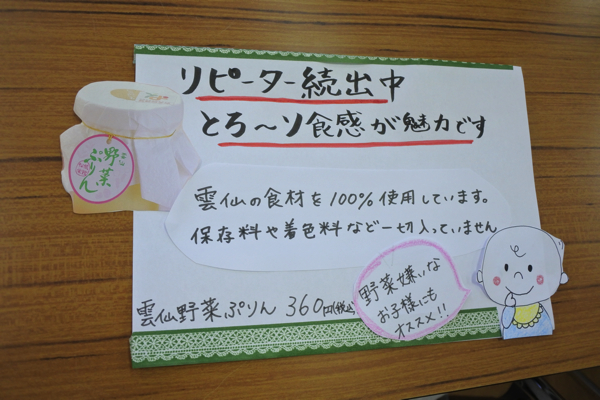 リピーター続出中
とろ〜ソ食感が魅力です
野菜
ぷりん
雲仙の食材を100%使用しています。
保存料や着色料など一切入っていません
雲仙野菜ぷりん 360円(税込)
野菜嫌いな
お子様にも
オススメ!!